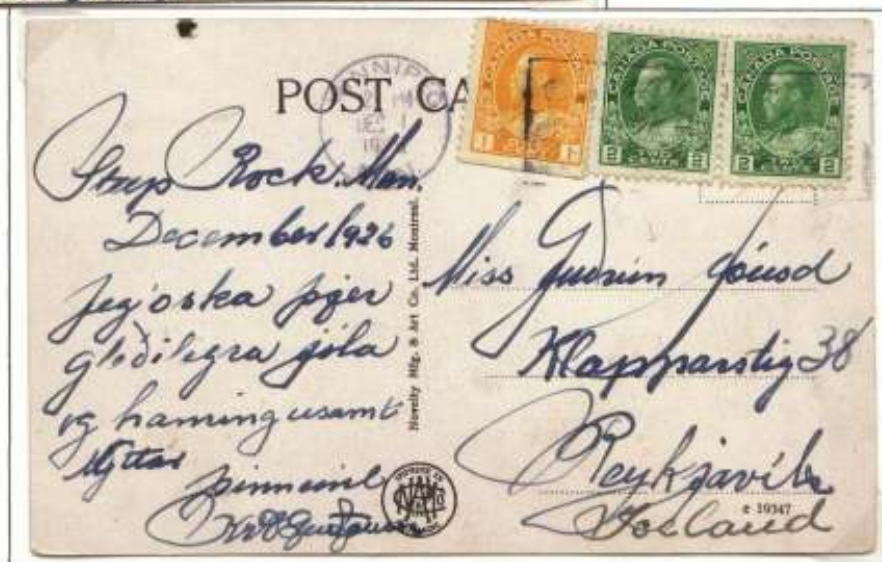 POST CA
WINNIP
DEC 1
CANADA POSTAGE
1 1
CANADA POSTAGE
2 TWO CENTS 2
CANADA POSTAGE
2 TWO CENTS 2
Steep Rock. Man.
December 1926
Jeg óska þjer
gleðilegra jóla
og hamingusamt
Nyttár
þinn einl
Novelty Mfg. & Art Co. Ltd. Montreal.
Miss Gudrún Jónsd
Klapparstig 38
Reykjavik
Iceland
c 19347